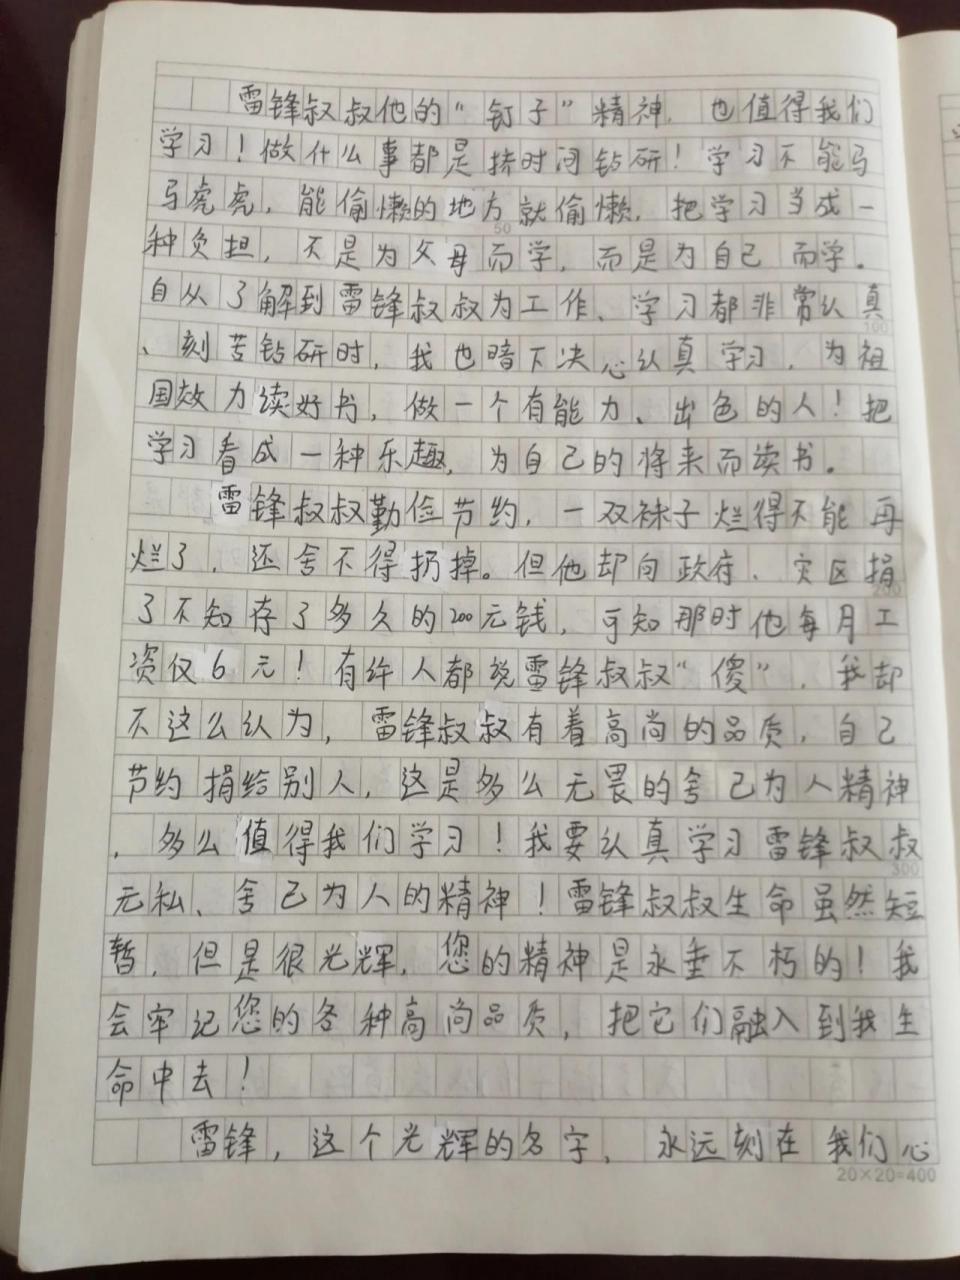 雷锋叔叔他的“钉子”精神，也值得我们
学习！做什么事都是挤时间钻研！学习不能马
马虎虎，能偷懒的地方就偷懒，把学习当成一
50
种负担，不是为父母而学，而是为自己而学。
自从了解到雷锋叔叔为工作、学习都非常认真
100
、刻苦钻研时，我也暗下决心认真学习，为祖
国效力读好书，做一个有能力、出色的人！把
学习看成一种乐趣，为自己的将来而读书。
雷锋叔叔勤俭节约，一双袜子烂得不能再
烂了，还舍不得扔掉。但他却向政府、灾区捐
200
了不知存了多久的200元钱，可知那时他每月工
资仅6元！有许人都说雷锋叔叔“傻”，我却
不这么认为，雷锋叔叔有着高尚的品质，自己
节约捐给别人，这是多么无畏的舍己为人精神
，多么值得我们学习！我要认真学习雷锋叔叔
300
无私、舍己为人的精神！雷锋叔叔生命虽然短
暂，但是很光辉，您的精神是永垂不朽的！我
会牢记您的各种高尚品质，把它们融入到我生
命中去！
雷锋，这个光辉的名字，永远刻在我们心
20×20=400